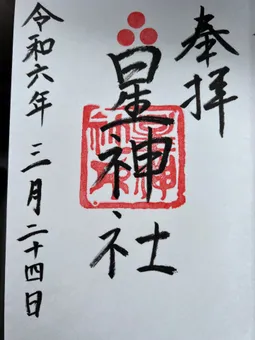 奉拝
星神社
令和六年 三月二十四日